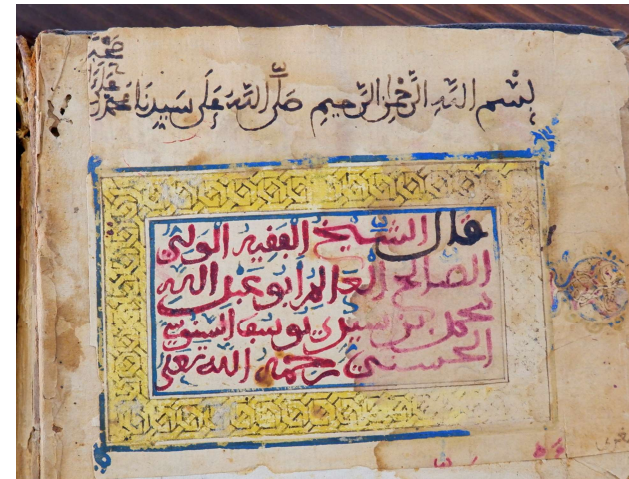 بسم الله الرحمن الرحيم صلى الله على سيدنا محمد وعلى آله
وصحبه
قال الشيخ الفقيه الولي
الصالح العالم أبو عبد الله
محمد بن سيدي يوسف السنوسي
الحسني رحمه الله تعلى